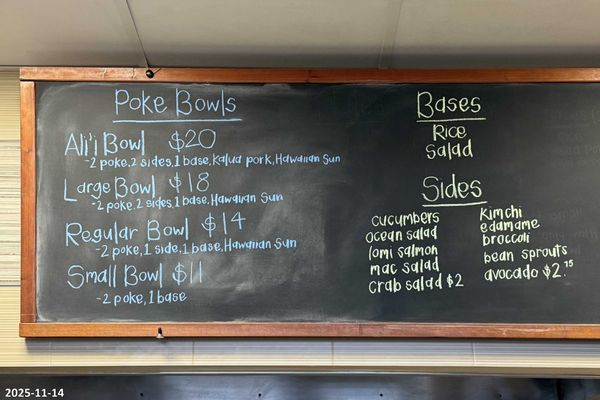 Poke Bowls
Ali'i Bowl $20
-2 poke, 2 sides, 1 base, Kalua pork, Hawaiian Sun
Large Bowl $18
-2 poke, 2 sides, 1 base, Hawaiian Sun
Regular Bowl $14
-2 poke, 1 side, 1 base, Hawaiian Sun
Small Bowl $11
-2 poke, 1 base
Bases
Rice
Salad
Sides
cucumbers
ocean salad
lomi salmon
mac salad
crab salad $2
Kimchi
edamame
broccoli
bean sprouts
avocado $2.75
2025-11-14